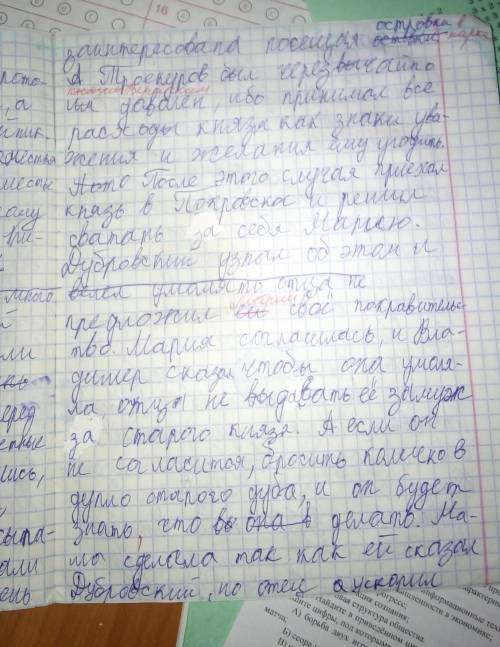 заинтересована посещая островки в парке
А Троекуров был черезвычайно
им довален, ибо принимал все
расходы князя как знаки ува-
жения и желания ему угодить.
После этого случая приехал
князь в Покровское и решил
сватать за себя Марью.
Дубровский узнал об этом и
велел умолять отца не
предложил своё покравительс-
тво. Мария согласилась, и Вла-
димер сказал чтобы она умоля-
ла, отца не выдавать её замуж
за старого князя. А если он
не согласится, бросить колечко в
дупло старого дуба, и он будет
знать, что делать. Ма-
ша сделала так как ей сказал
Дубровский, но отец ускорил
рото-
а
ник-
местье
много
ли
еред
лись,
ыпа-
али
ень
16
структура общества.
матча:
А) борьба двух
Б)